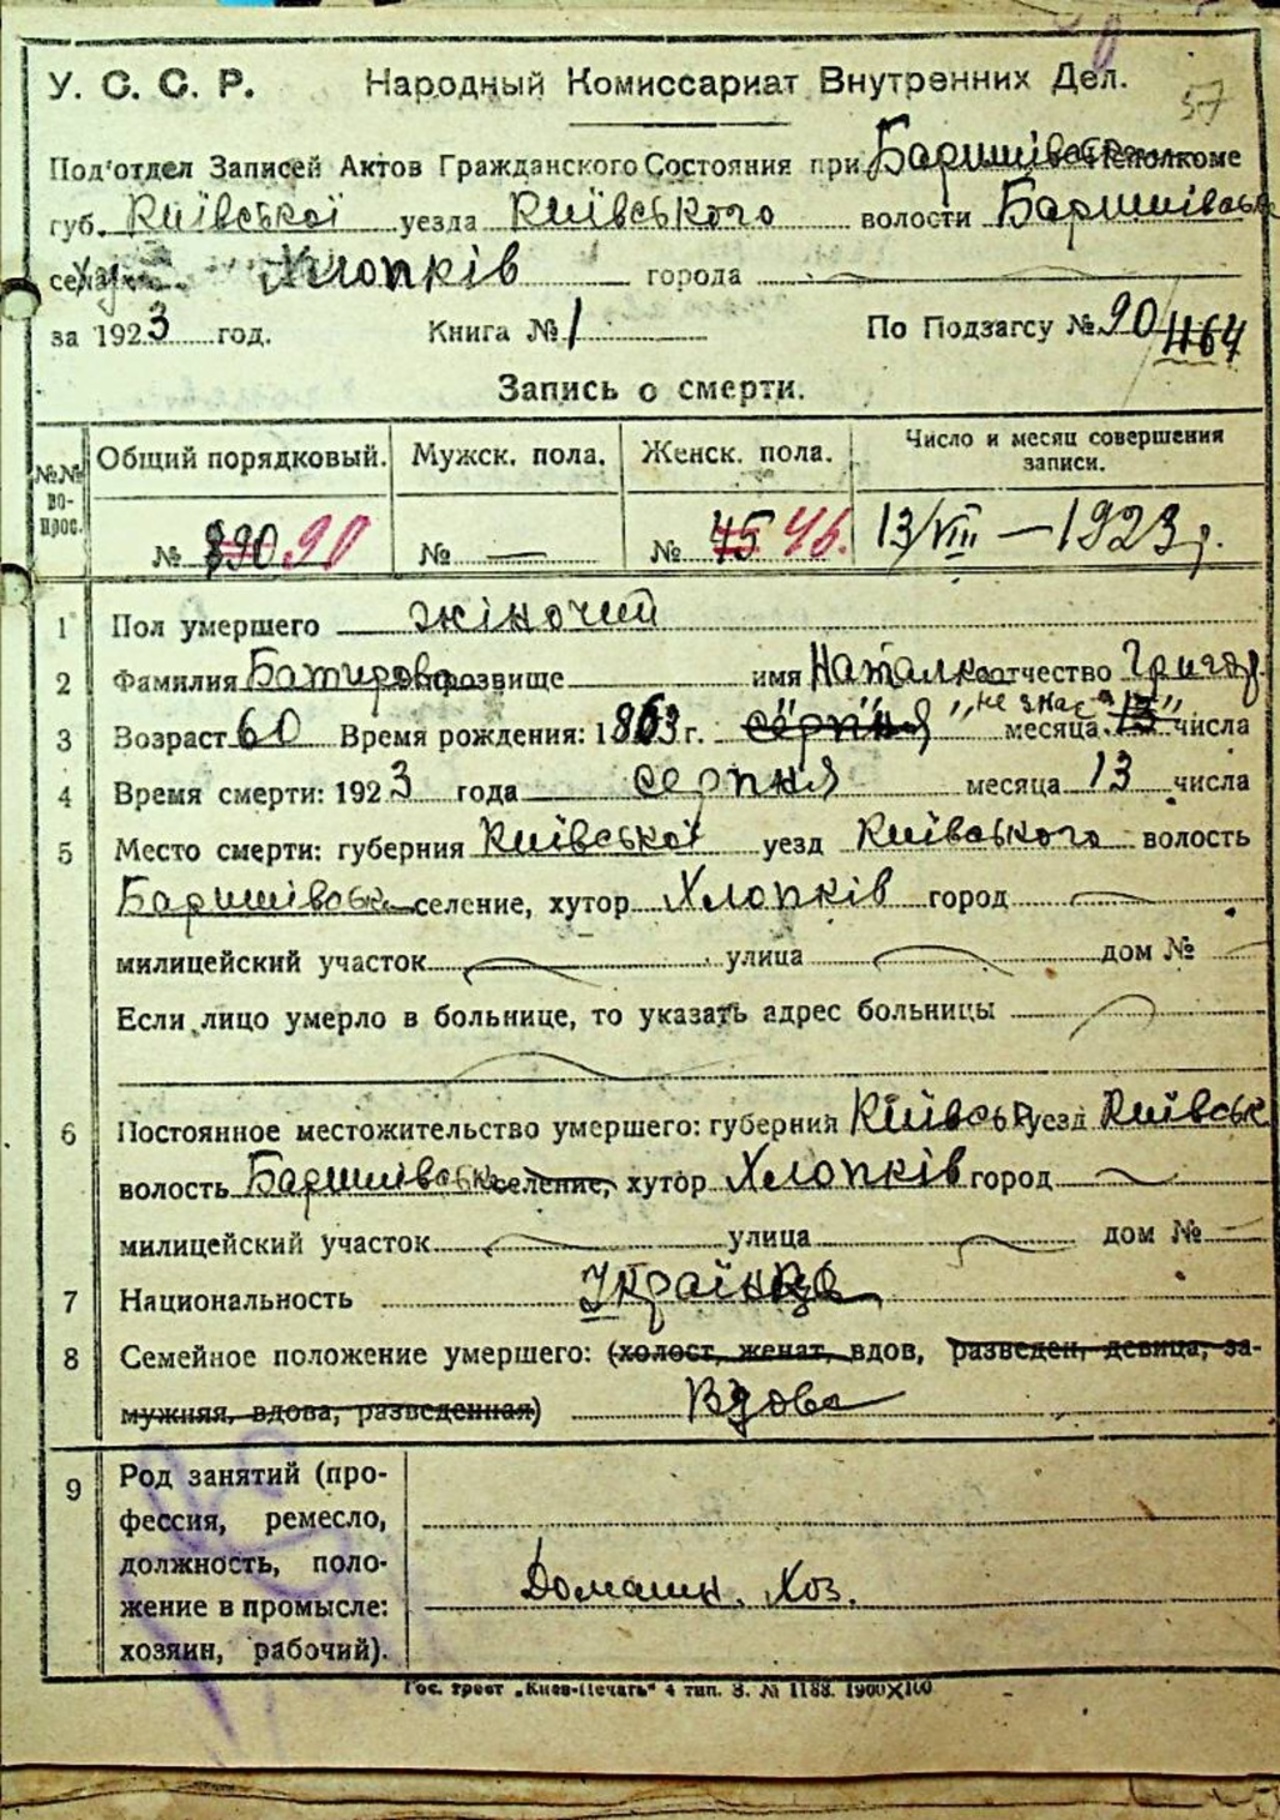 57
У. С. С. Р. Народный Комиссариат Внутренних Дел.
Под'отдел Записей Актов Гражданского Состояния при Исполкоме
губ. Київської уезда Київського волости Баришівськ
села Хлопків города
за 1923 год. Книга № 1 По Подзагсу № 90/1164
Запись о смерти.
№№ вопрос. Общий порядковый. Мужск. пола. Женск. пола. Число и месяц совершения записи.
№ 390 90 № — № 45 46. 13/VIII — 1923 р.
1 Пол умершего жіночий
2 Фамилия прозвище имя Наталка отчество Григор.
3 Возраст 60 Время рождения: 1863 г. серпня "не знає" месяца 13 числа
4 Время смерти: 1923 года серпня месяца 13 числа
5 Место смерти: губерния Київської уезд Київського волость
Баришівськ селение, хутор Хлопків город —
милицейский участок — улица — дом № —
Если лицо умерло в больнице, то указать адрес больницы —
6 Постоянное местожительство умершего: губерний Київськ уезд Київськ
волость Баришівськ селение, хутор Хлопків город —
милицейский участок — улица — дом № —
7 Национальность Українка
8 Семейное положение умершего: (холост, женат, вдов, разведен, девица, за-
мужняя, вдова, разведенная) Вдова
9 Род занятий (про-
фессия, ремесло,
должность, поло-
жение в промысле:
хозяин, рабочий).
Домашн. Хоз.
Гос. трест „Киев-Печать" 4 тип. З. № 1188. 1900X100